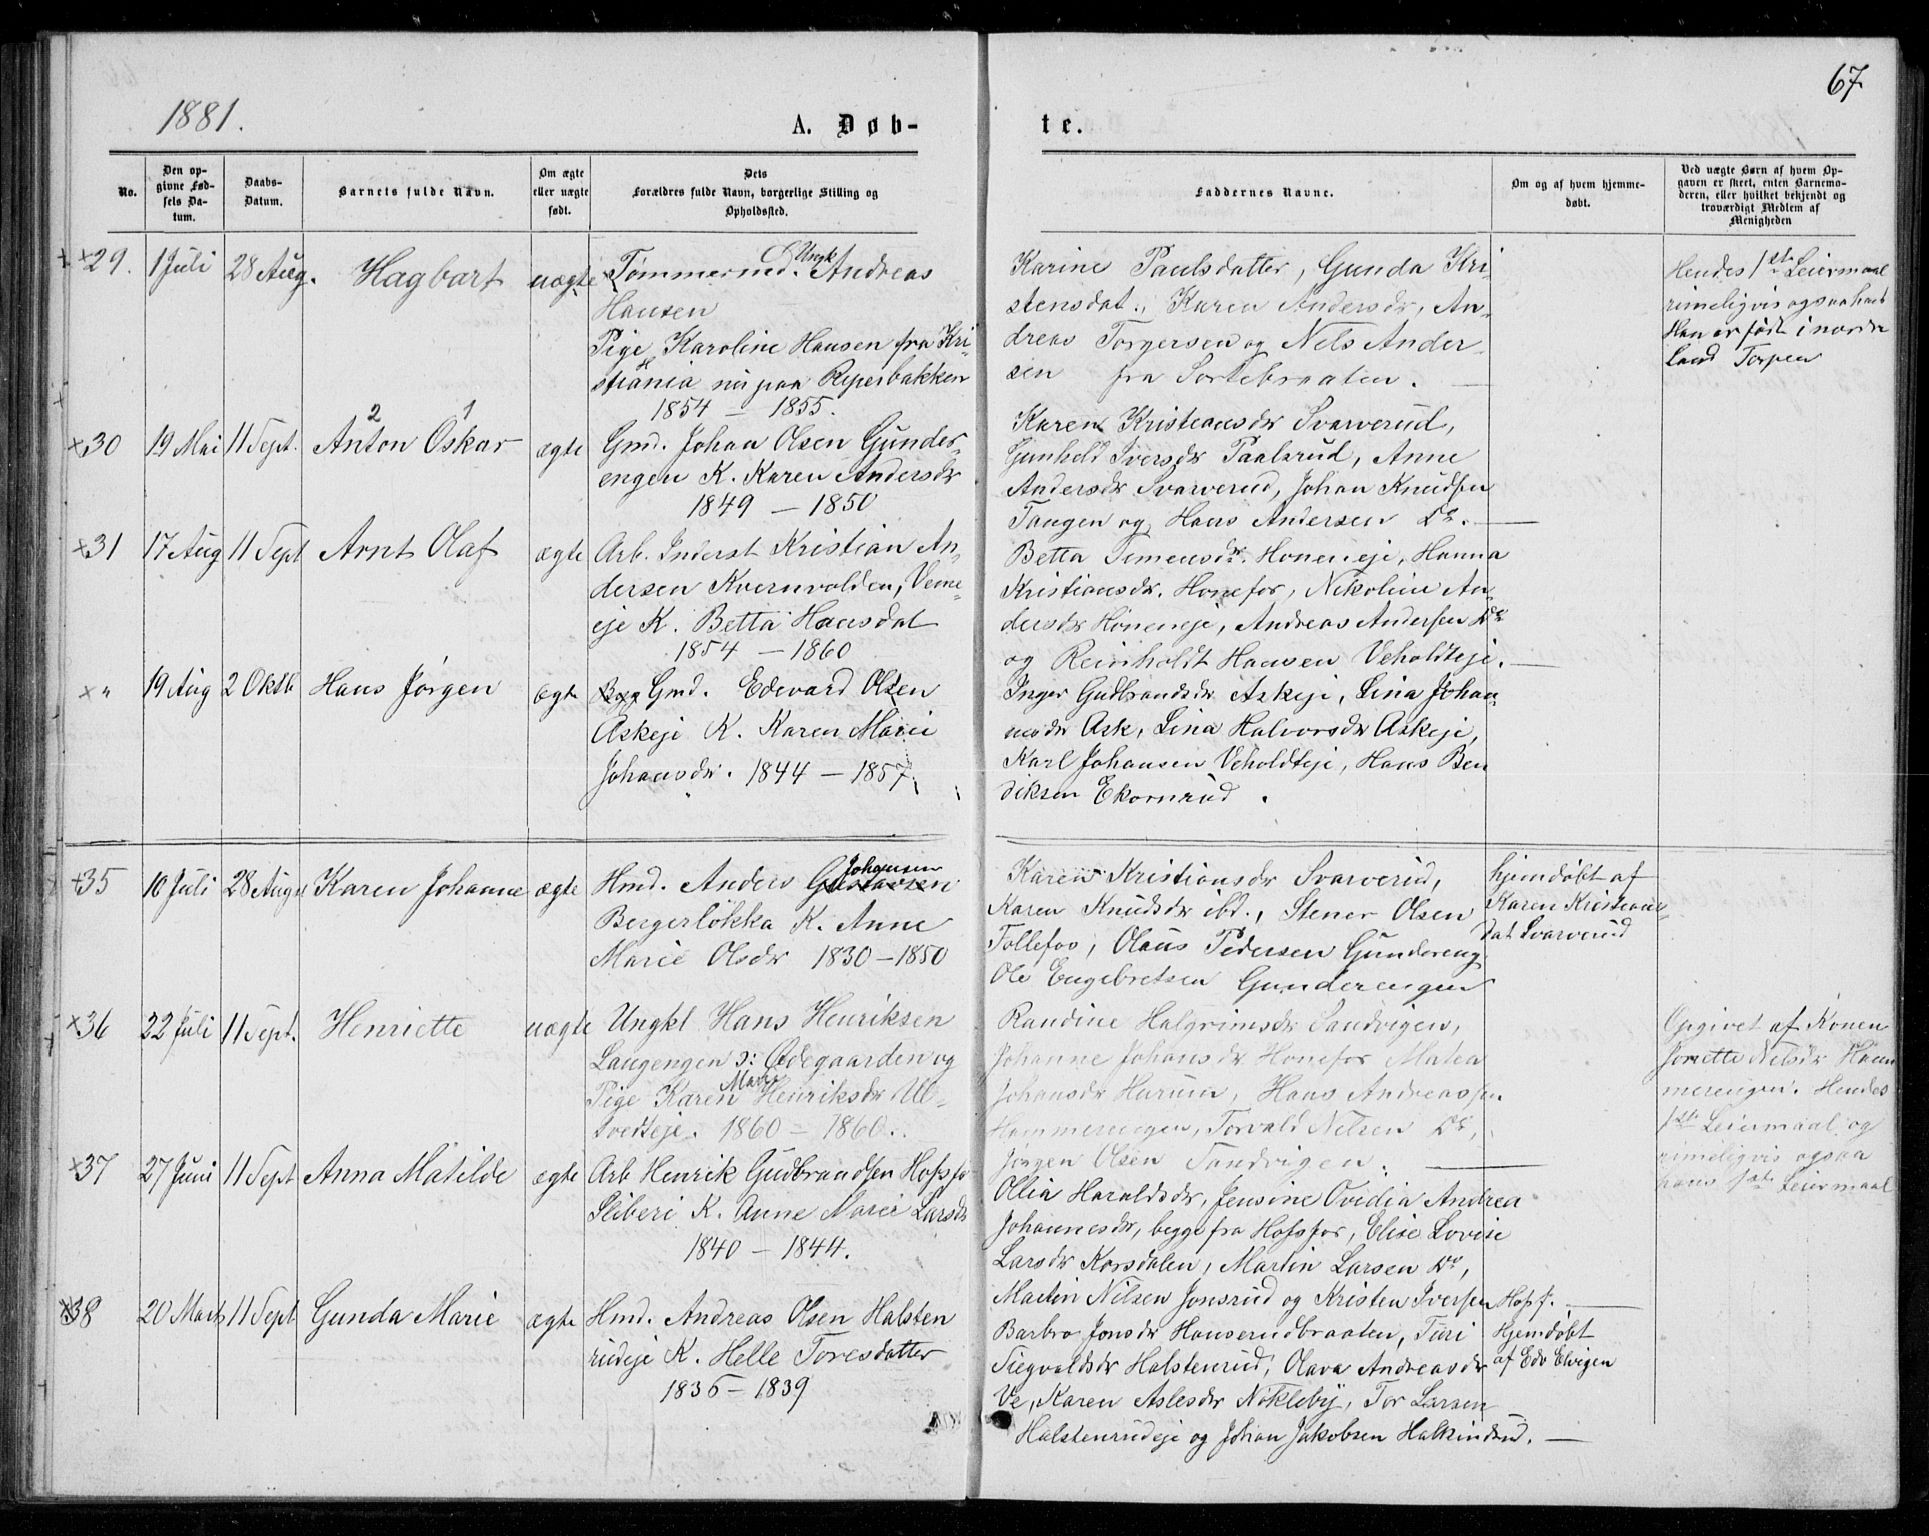 1881.
67
A. Døb-
te.
No.
Den op-
givne Fød-
sels Da-
tum.
Daabs-
Datum.
Barnets fulde Navn.
Om ægte
eller uægte
født.
Dets
Forældres fulde Navn, borgerlige Stilling og
Opholdssted.
Faddernes Navne.
Om og af hvem hjemme-
døbt.
Ved uægte Børn af hvem Op-
gaven er skeet, enten Barnemo-
deren, eller hvilket bekjendt og
troværdigt Medlem af
Menigheden
×29. 1 Juli 28 Aug. Hagbart uægte
Ungk
Tømmermd. Andreas
Hansen
Pige Karoline Hansen fra Kri-
stiania nu paa Ryperbakken
1854 — 1855.
Karine Paulsdatter, Gunda Kri-
stensdat., Karen Andersdr, An-
dreas Torgersen og Nels Ander-
sen fra Sortebraaten.
Hendes 1ste Leiermaal
rimeligvis ogsaa hans
Han er født i nordre
Land Torpen
2 1
×30 19 Mai 11 Sept. Anton Oskar ægte
Gmd. Johan Olsen Gunder-
engen K. Karen Andersdr
1849 — 1850
Karen Kristiansdr Svarverud,
Gunhild Iversdr Paalsrud, Anne
Andersdr Svarverud, Johan Knudsen
Tangen og Hans Andersen Do. —
×31 17 Aug 11 Sept Arnt Olaf ægte
Arb. Inderst Kristian An-
dersen Kvernvolden, Veme-
eje K. Betta Hansdat
1854 — 1860
Betta Simensdr. Honeneje, Hanna
Kristiansdr. Honefos, Nikoline An-
dersdr Honeneje, Andreas Andersen Do
og Reinholdt Hansen Veholdteje. —
× " 19 Aug 2 Oktb Hans Jørgen ægte
Gmd. Edevard Olsen
Askeje K. Karen Marie
Johansdr. 1844 — 1857.
Inger Gudbrandsdr Askeje, Lina Johan-
nesdr Ask, Lina Halvorsdr Askeje,
Karl Johansen Veholdteje, Hans Ben
diksen Ekornrud.
×35 10 Juli 28 August Karen Johanne ægte
Johansen
Hmd. Anders Gulbrandsen
Bergerløkka K. Anne
Marie Olsdr 1830 — 1850
Karen Kristiansdr Svarverud,
Karen Knudsdr ibd., Stener Olsen
Tollefos, Olaus Pedersen Gundereng
Ole Engebretsen Gunderengen
hjemdøbt af
Karen Kristians-
dat Svarverud
×36 22 Juli 11 Sept. Henriette uægte
Ungkl Hans Henriksen
Langengen ɔ: Ødegaarden og
Marie
Pige Karen Henriksdr Ul-
tvedteje. 1860 — 1860.
Randine Halgrimsdr Sandvigen,
Johanne Johansdr Honefos Matea
Johansdr Hurum, Hans Andreassen
Hammerengen, Torvald Nilsen Do,
Jørgen Olsen Tandvigen. —
Opgivet af Konen
Jonette Nilsdr Ham
merengen. Hendes
1ste Leiermaal og
rimeligvis ogsaa
hans 1ste Leiermaal
×37 27 Juni 11 Sept Anna Matilde ægte
Arb Henrik Gudbrandsen Hofsfo
Sliberi K. Anne Marie Larsdr
1840 — 1844.
Ollia Haraldsdr, Jensine Ovidia Andrea
Johannesdr, begge fra Hofsfos, Elise Lovise
Larsdr Korsdalen, Martin Larsen Do,
Martin Nilsen Jonsrud og Kristen Iversen Hofsf. —
×38 20 Marts 11 Sept Gunda Marie ægte
Hmd. Andreas Olsen Halsten
rudeje K. Helle Toresdatter
1836 — 1839
Barbro Jonsdr Hanserudbraaten, Turi
Siegvaldsdr Halstenrud, Olava Andreasdr
Ve, Karen Aslesdr Nökleby, Tor Larsen
Halstenrudeje og Johan Jakobsen Halkinsrud. —
Hjemdøbt
af Edv Elvigen